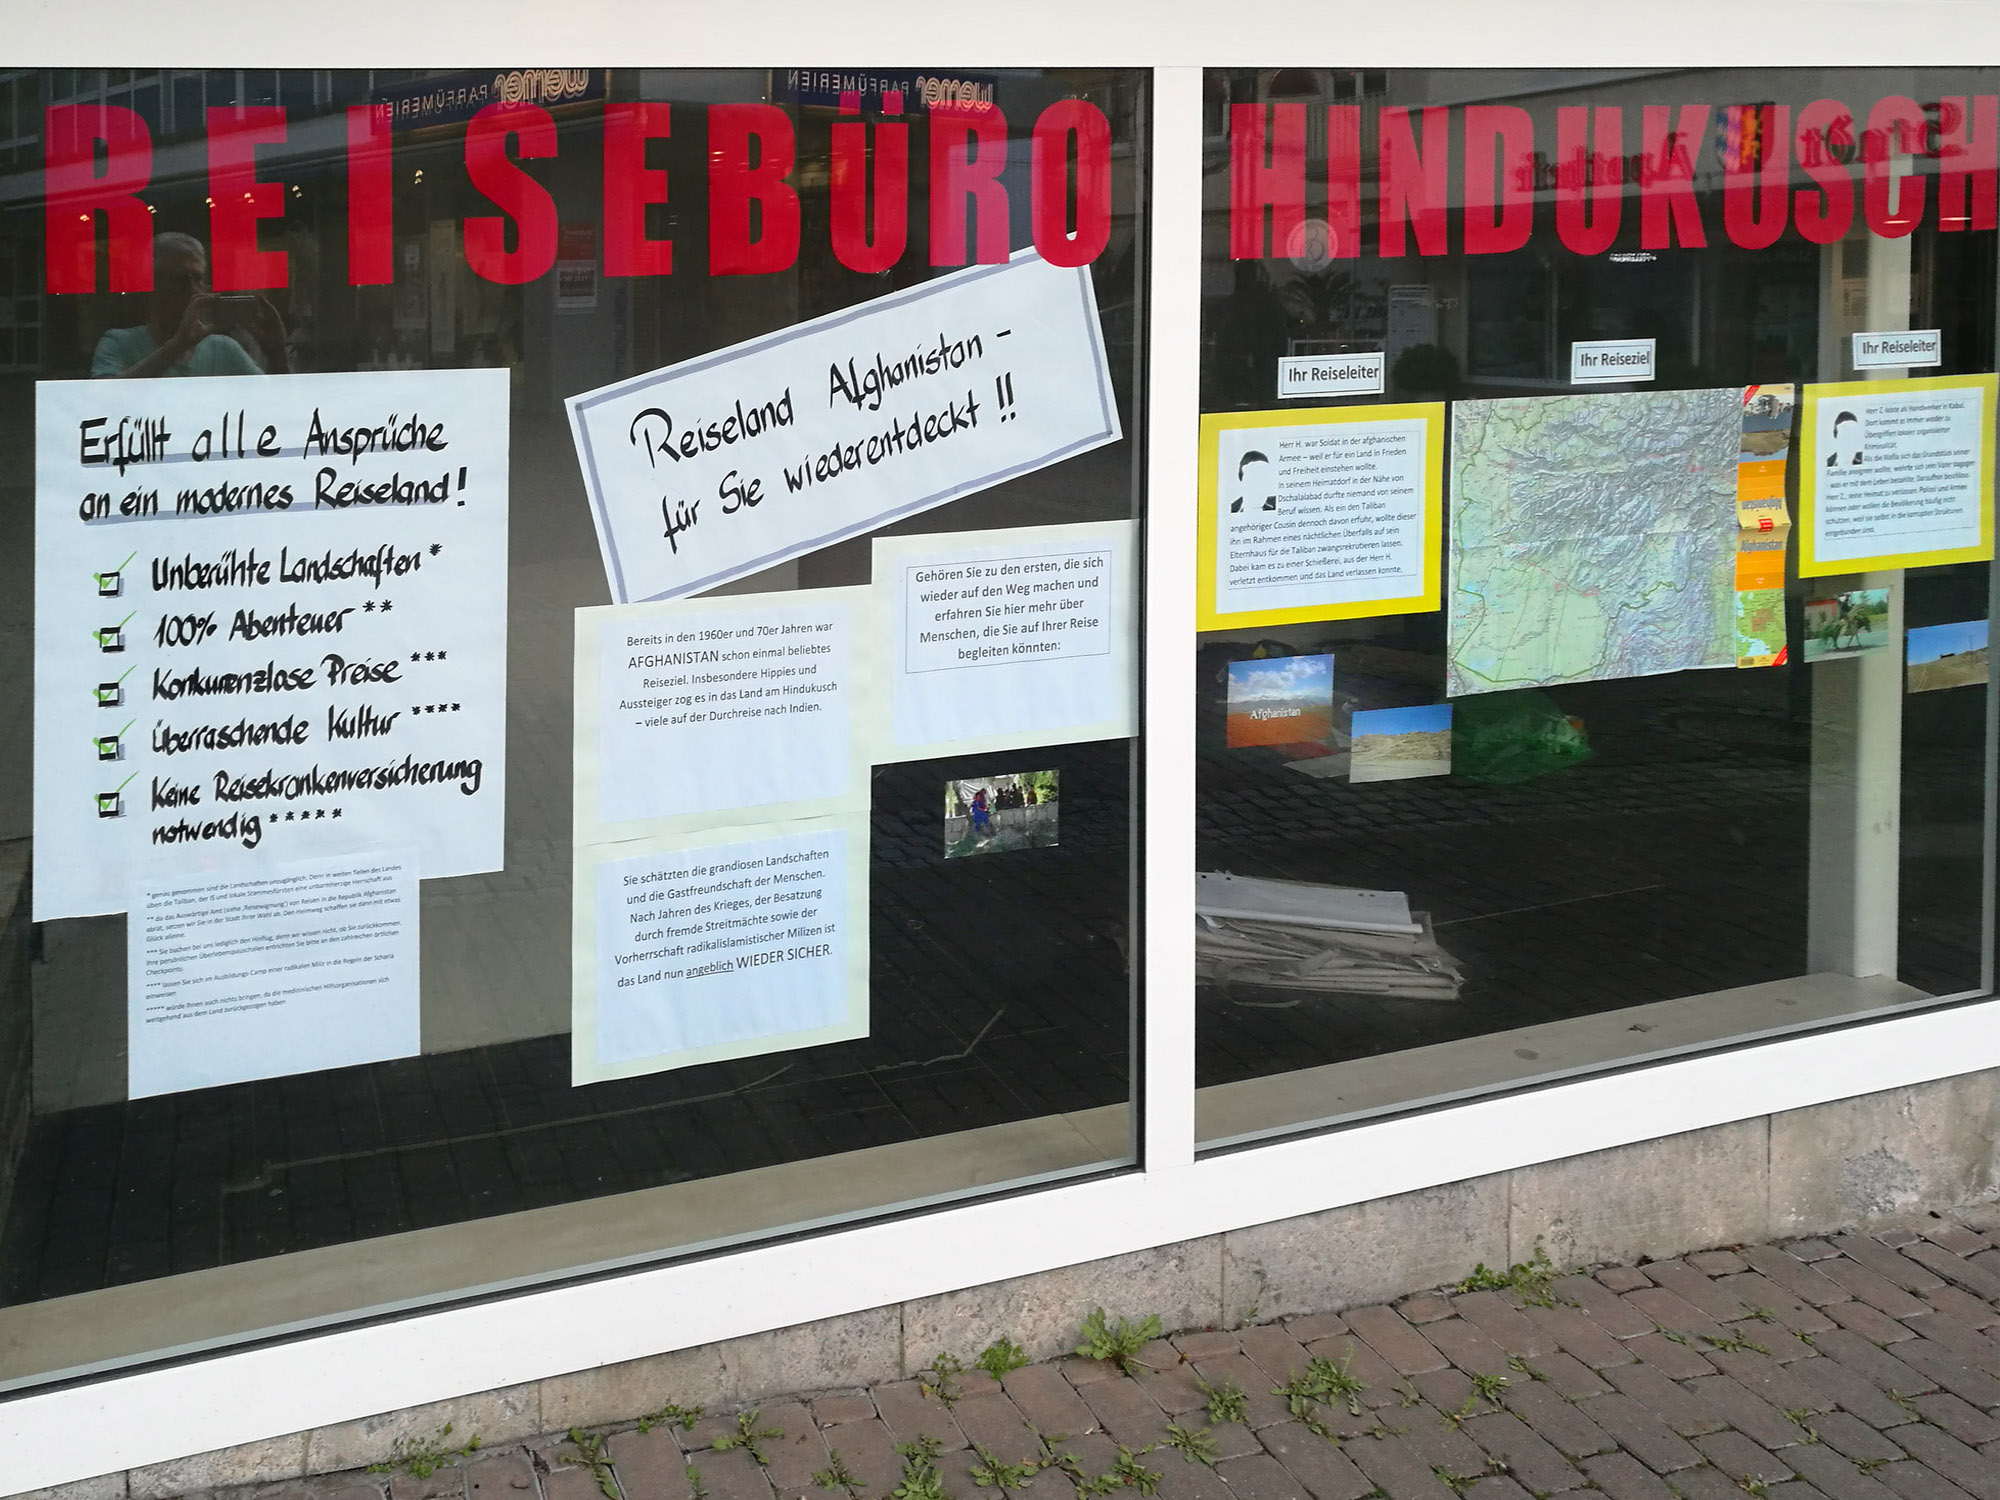 REISEBÜRO HINDUKUSCH
Erfüllt alle Ansprüche
an ein modernes Reiseland!
Unberührte Landschaften *
100% Abenteuer **
Konkurrenzlose Preise ***
Überraschende Kultur ****
Keine Reisekrankenversicherung
notwendig *****
* genau genommen sind die Landschaften unzugänglich. Denn in weiten Teilen des Landes
üben die Taliban, der IS und lokale Stammesfürsten eine unbarmherzige Herrschaft aus
** da das Auswärtige Amt (siehe ,Reisewarnung') von Reisen in die Republik Afghanistan
abrät, setzen wir Sie in der Stadt Ihrer Wahl ab. Den Heimweg schaffen sie dann mit etwas
Glück alleine.
*** Sie buchen bei uns lediglich den Hinflug, denn wir wissen nicht, ob Sie zurückkommen.
Ihre persönlichen Überlebenspauschalen entrichten Sie bitte an den zahlreichen örtlichen
Checkpoints.
**** lassen Sie sich im Ausbildungs-Camp einer radikalen Miliz in die Regeln der Scharia
einweisen
***** würde Ihnen auch nichts bringen, da die medizinischen Hilfsorganisationen sich
weitgehend aus dem Land zurückgezogen haben
Reiseland Afghanistan -
für Sie wiederentdeckt !!
Bereits in den 1960er und 70er Jahren war
AFGHANISTAN schon einmal beliebtes
Reiseziel. Insbesondere Hippies und
Aussteiger zog es in das Land am Hindukusch
– viele auf der Durchreise nach Indien.
Sie schätzten die grandiosen Landschaften
und die Gastfreundschaft der Menschen.
Nach Jahren des Krieges, der Besatzung
durch fremde Streitmächte sowie der
Vorherrschaft radikalislamistischer Milizen ist
das Land nun angeblich WIEDER SICHER.
Gehören Sie zu den ersten, die sich
wieder auf den Weg machen und
erfahren Sie hier mehr über
Menschen, die Sie auf Ihrer Reise
begleiten könnten:
Ihr Reiseleiter
Herr H. war Soldat in der afghanischen
Armee – weil er für ein Land in Frieden
und Freiheit einstehen wollte.
In seinem Heimatdorf in der Nähe von
Dschalalabad durfte niemand von seinem
Beruf wissen. Als ein den Taliban
angehöriger Cousin dennoch davon erfuhr, wollte dieser
ihn im Rahmen eines nächtlichen Überfalls auf sein
Elternhaus für die Taliban zwangsrekrutieren lassen.
Dabei kam es zu einer Schießerei, aus der Herr H.
verletzt entkommen und das Land verlassen konnte.
Afghanistan
Ihr Reiseziel
Afghanistan
Afghanistan
Ihr Reiseleiter
Herr Z. lebte als Handwerker in Kabul.
Dort kommt es immer wieder zu
Übergriffen lokaler organisierter
Kriminalität.
Als die Mafia sich das Grundstück seiner
Familie aneignen wollte, wehrte sich sein Vater dagegen
- was er mit dem Leben bezahlte. Daraufhin beschloss
Herr Z., seine Heimat zu verlassen. Polizei und Armee
können oder wollen die Bevölkerung häufig nicht
schützen, weil sie selbst in die korrupten Strukturen
eingebunden sind.
werner PARFÜMERIEN
werner PARFÜMERIEN
Stadt Apotheke